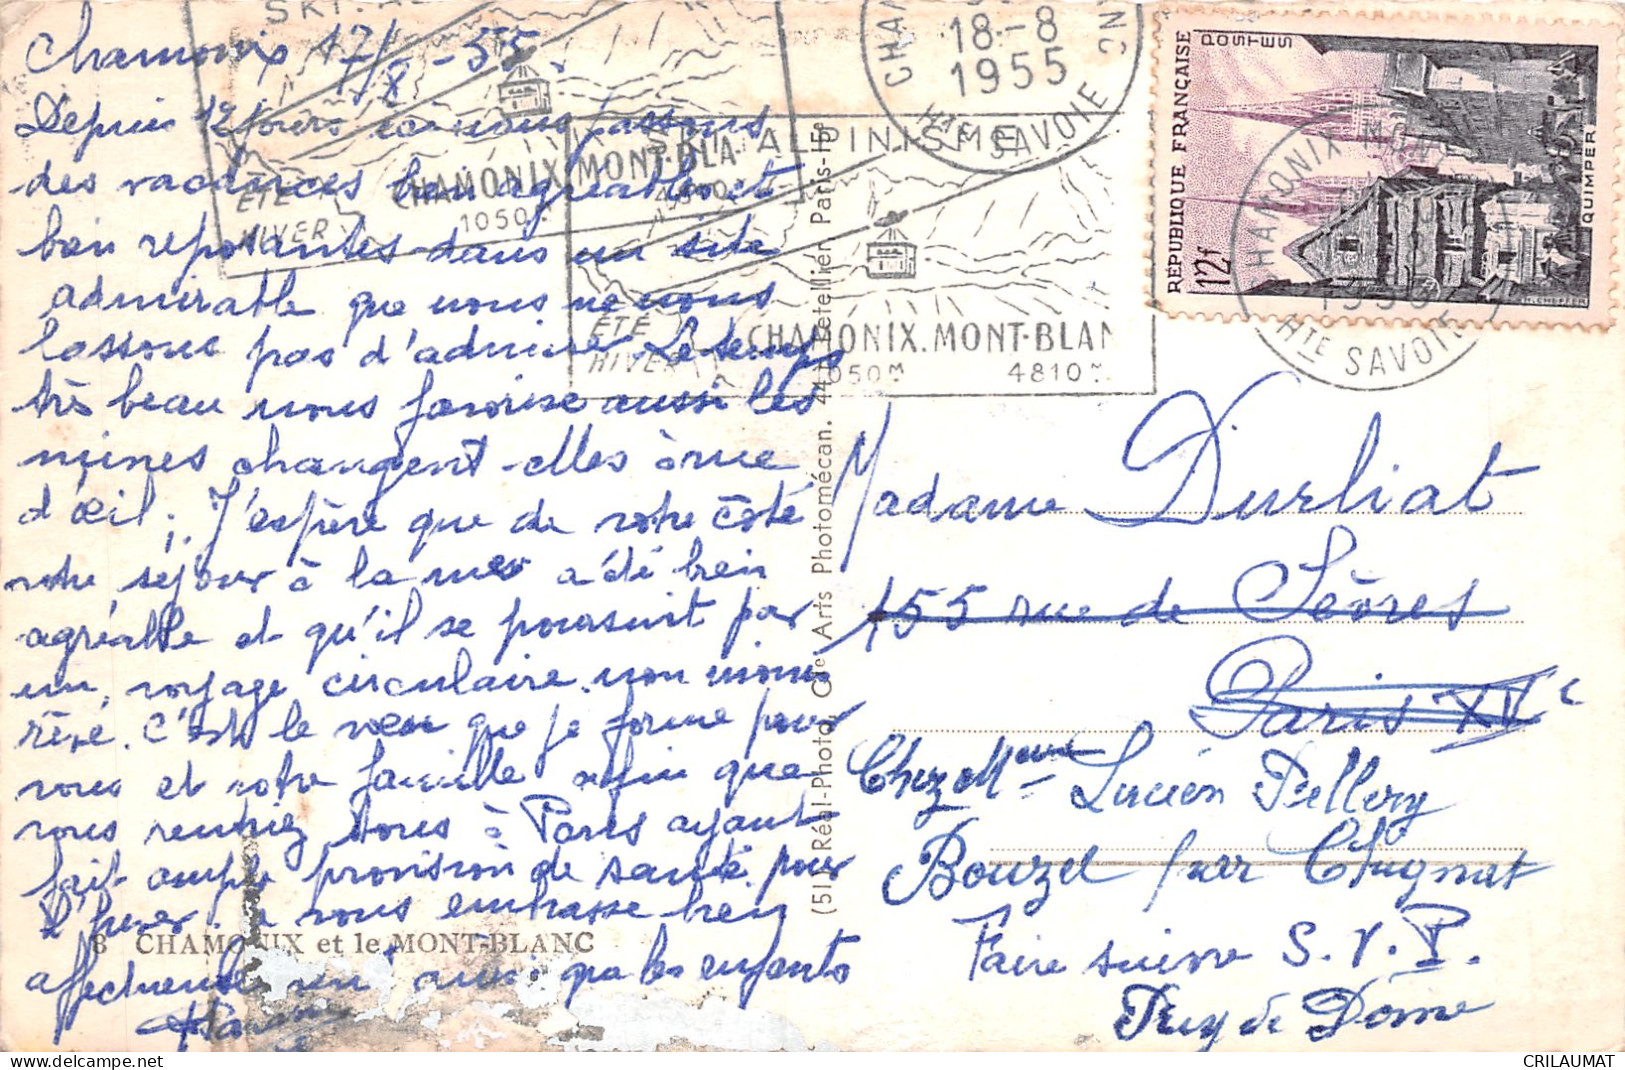 Chamonix 17/8-55.
Depuis 12 jours que nous passons
des vacances bien agréables et
bien reposantes dans un site
admirable que nous ne nous
lassons pas d'admirer. Le temps
très beau nous favorise aussi les
mines changent elles à vue
d'œil. J'espère que de votre côté
votre séjour à la mer a été bien
agréable et qu'il se poursuit par
un voyage circulaire non moins
rêvé. C'est le vœu que je forme pour
vous et votre famille afin que
vous rentriez tous à Paris ayant
fait ample provision de santé pour
l'hiver. Je vous embrasse bien
affectueusement ainsi que les enfants
8 CHAMONIX et le MONT-BLANC
(51) Réal-Photo, Cie Arts Photomécan. 44, r. Letellier, Paris-15e
SKI. AL
ÉTÉ
HIVER
CHAMONIX MONT-BLA
1050M
SKI ALPINISME
ÉTÉ
HIVER
CHAMONIX. MONT-BLAN
1050M 4810M
CHAMONIX MONT-BLANC
18-8
1955
HTE SAVOIE
RÉPUBLIQUE FRANÇAISE
POSTES
12f
QUIMPER
CHAMONIX MONT-BLANC
HTE SAVOIE
Madame Durliat
155 rue de Sèvres
Paris XVe
Chez Mme Lucien Pellery
Bouzel par Chignat
Faire suivre S.V.P.
Puy de Dôme
CRILAUMAT